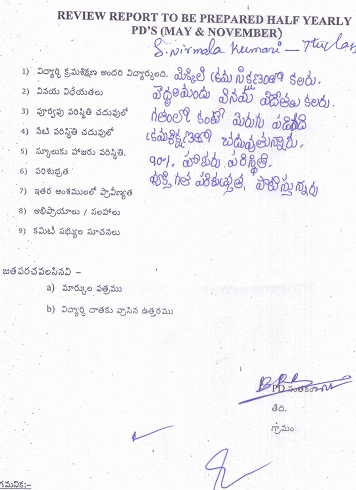 REVIEW REPORT TO BE PREPARED HALF YEARLY
PD'S (MAY & NOVEMBER)
S. Nirmala Kumari –
1) విద్యార్థి క్రమశిక్షణ అందరి విద్యార్థులది. క్రమ శిక్షణతో కలరు.
2) వినయ విధేయతలు వినయ విధేతలు కలరు.
3) పూర్వపు పరిస్థితి చదువులో గతంలో కంటే మెరుగు
4) నేటి పరిస్థితి చదువులో క్రమశిక్షణతో చదువుతున్నారు.
5) స్కూలుకు హాజరు పరిస్థితి. 90% హాజరు
6) పరిశుభ్రత వ్యక్తిగత పరిశుభ్రత పాటిస్తున్నారు
7) ఇతర అంశములలో ప్రావీణ్యత
8) అభిప్రాయాలు / సలహాలు
9) కమిటీ సభ్యుల సూచనలు
జతపరచవలసినవి –
a) మార్కుల పత్రము
b) విద్యార్థి దాతకు వ్రాసిన ఉత్తరము
తేది.
గ్రామం
గమనిక:–